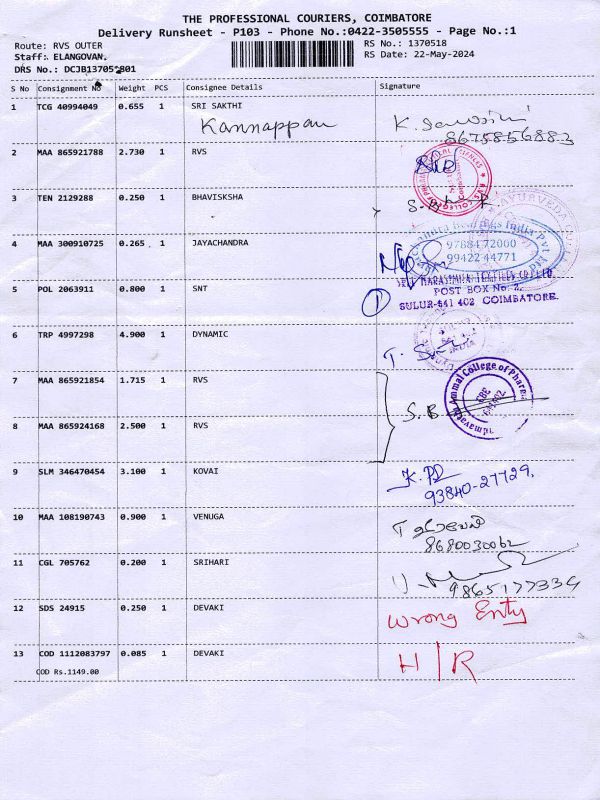 THE PROFESSIONAL COURIERS, COIMBATORE
Delivery Runsheet - P103 - Phone No.:0422-3505555 - Page No.:1
Route: RVS OUTER
RS No.: 1370518
Staff: ELANGOVAN.
RS Date: 22-May-2024
DRS No.: DCJB13705
801
S No Consignment No Weight PCS Consignee Details Signature
1 TCG 40994049 0.655 1 SRI SAKTHI
Kannappan K.
8675856883
2 MAA 865921788 2.730 1 RVS
3 TEN 2129288 0.250 1 BHAVISKSHA
4 MAA 300910725 0.265 1 JAYACHANDRA
97884 72000
99422 44771
5 POL 2063911 0.800 1 SNT
1
POST BOX No: 2,
SULUR-641 402 COIMBATORE.
6 TRP 4997298 4.900 1 DYNAMIC
T.
7 MAA 865921854 1.715 1 RVS
Ammal College of Pharma
S.B
8 MAA 865924168 2.500 1 RVS
9 SLM 346470454 3.100 1 KOVAI
K.PD
93840-27729.
10 MAA 108190743 0.900 1 VENUGA
8680030062
11 CGL 705762 0.200 1 SRIHARI
9865177334
12 SDS 24915 0.250 1 DEVAKI
Wrong Enty
13 COD 1112083797 0.085 1 DEVAKI
H/R
COD Rs.1149.00